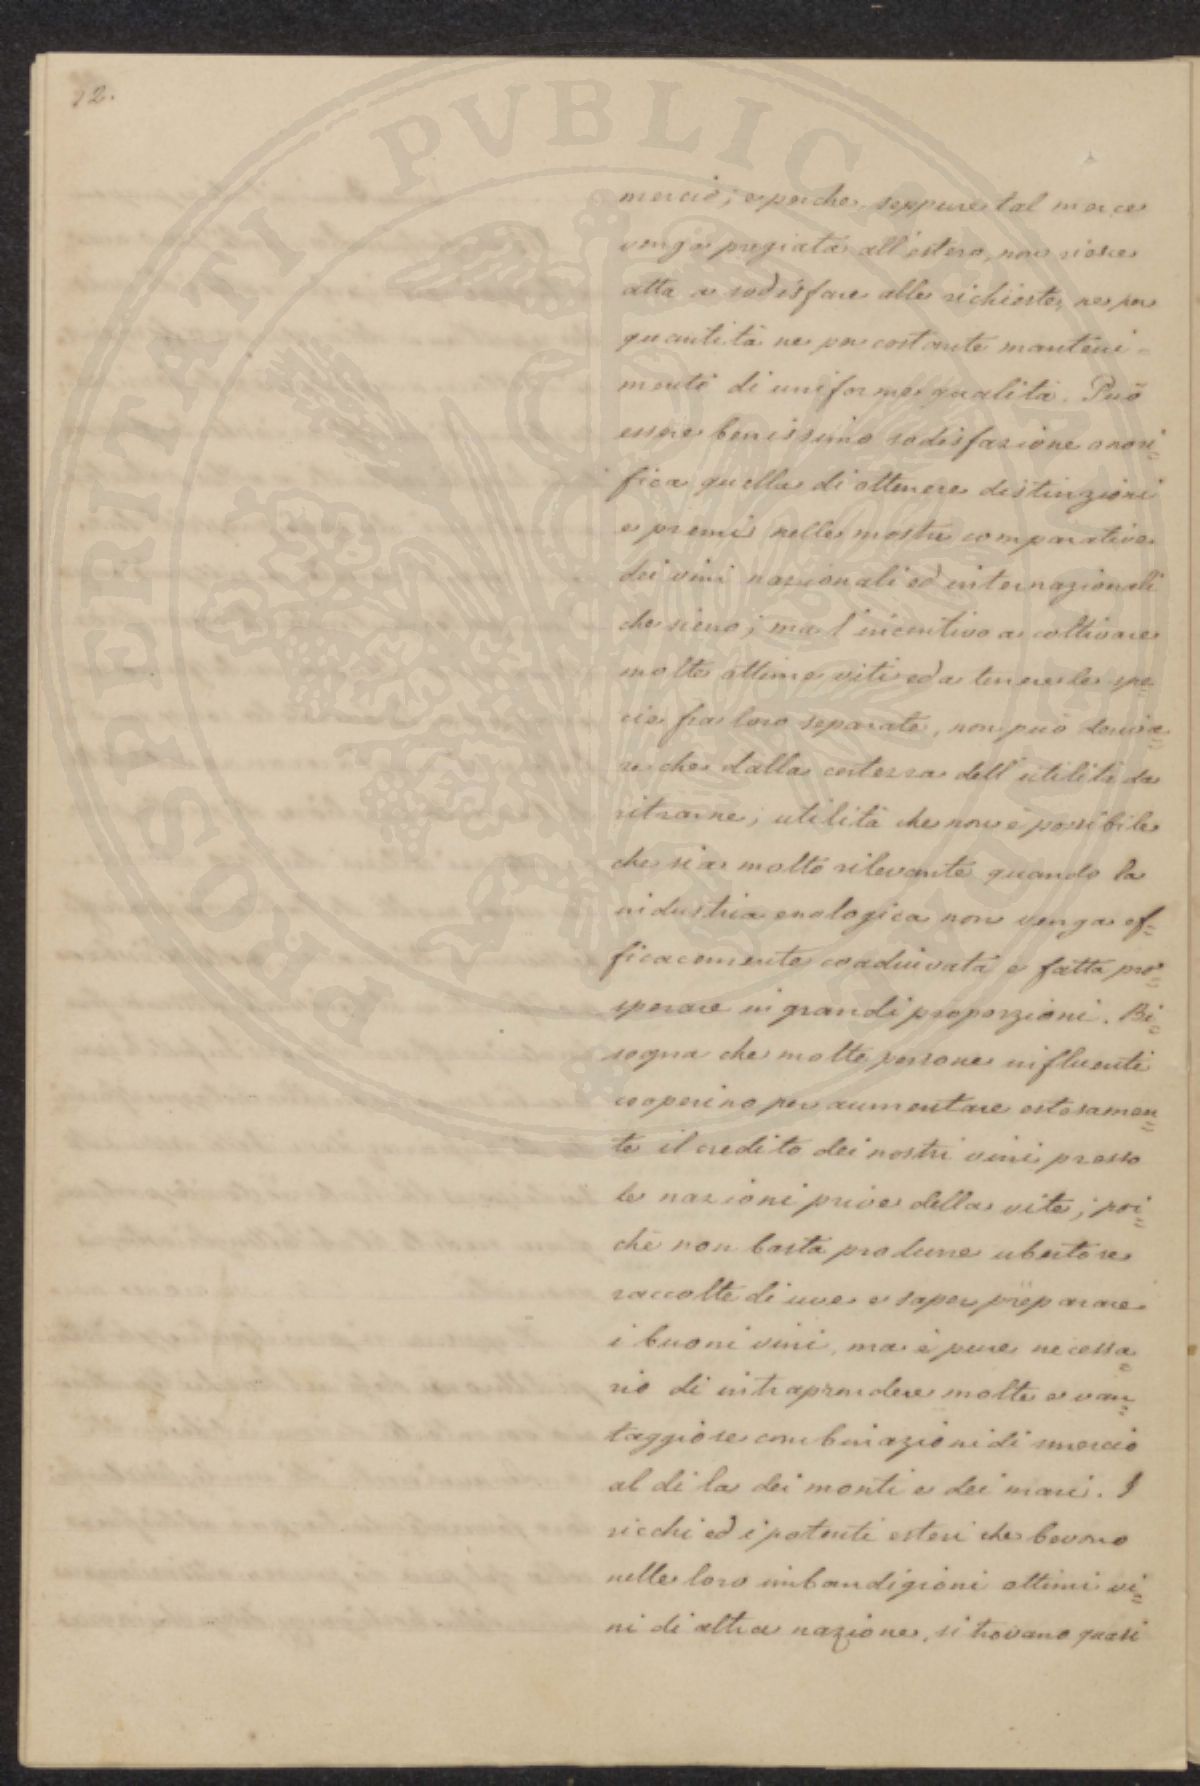 12.
mercio; e perche, seppure tal merce
venga pregiata all'estero, non riesce
atta a sodisfare alle richieste, ne per
quantità ne per costante manteni=
mento di uniforme qualità. Può
essere benissimo sodisfazione onori=
fica quella di ottenere distinzioni
e premi nelle mostre comparative
dei vini nazionali ed internazionali
che sieno; ma l'incentivo a coltivare
molte ottime viti ed a tenere le spe=
cie fra loro separate, non può deriva=
re che dalla certezza dell'utilità da
ritrarne; utilità che non è possibile
che sia molto rilevante quando la
industria enologica non venga ef=
ficacemente coadiuvata e fatta pro=
sperare in grandi proporzioni. Bi=
sogna che molte persone influenti
cooperino per aumentare estesamen=
te il credito dei nostri vini presso
le nazioni prive della vite; poi=
chè non basta produrre ubertose
raccolte di uve e saper preparare
i buoni vini, ma è pure necessa=
rio di intraprendere molte e van=
taggiose combinazioni di smercio
al di la dei monti e dei mari. I
ricchi ed i potenti esteri che bevono
nelle loro imbandigioni ottimi vi=
ni di altra nazione, si trovano quasi
PROSPERITATI PVBLICAE AVGENDAE